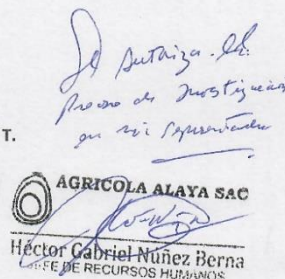 Se Autoriza el
Proceso de Investigación
en mi representada
T.
AGRICOLA ALAYA SAC
Héctor Gabriel Nuñez Berna
JEFE DE RECURSOS HUMANOS